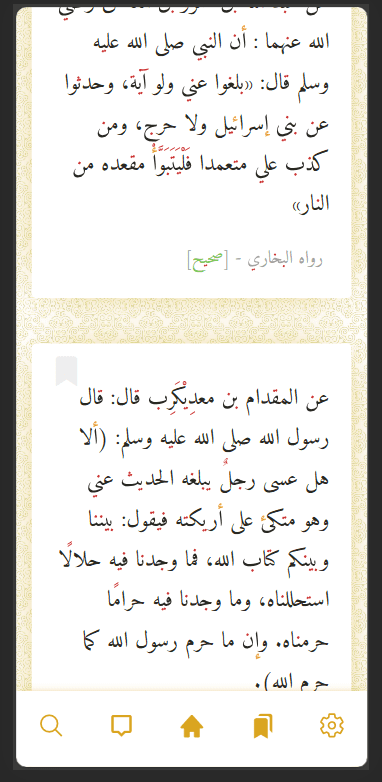 الله عنهما : أن النبي صلى الله عليه
وسلم قال: «بلغوا عني ولو آية، وحدثوا
عن بني إسرائيل ولا حرج، ومن
كذب علي متعمدا فَلْيَتَبَوَّأْ مقعده من
النار»
رواه البخاري - [صحيح]
عن المقدام بن معدِيْكَرِب قال: قال
رسول الله صلى الله عليه وسلم: (ألا
هل عسى رجلٌ يبلغه الحديث عني
وهو متكئ على أريكته فيقول: بيننا
وبينكم كتاب الله، فما وجدنا فيه حلالًا
استحللناه، وما وجدنا فيه حرامًا
حرمناه. وإن ما حرم رسول الله كما
حرم الله).